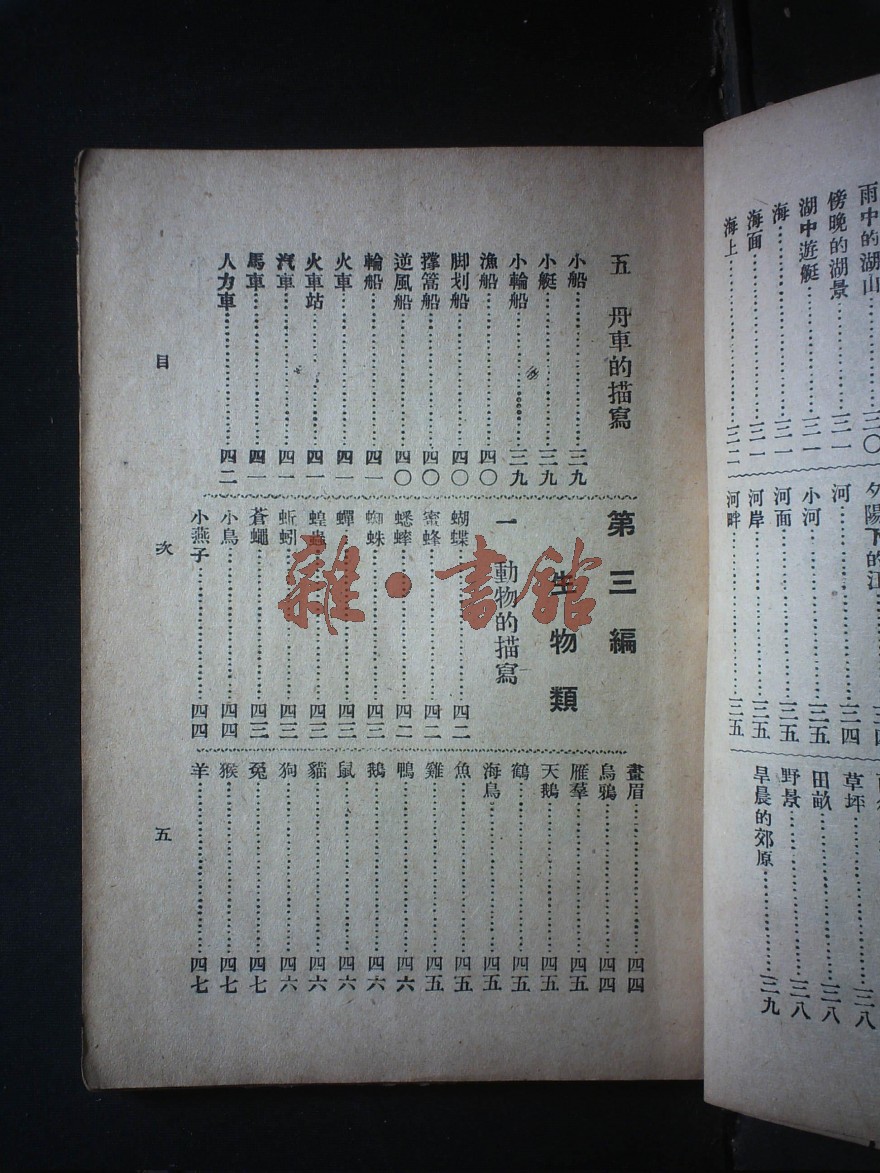 雨中的湖山…………三〇
傍晚的湖景…………三一
湖中遊艇…………三一
海…………三一
海面…………三一
海上…………三二
夕陽下的江
河…………三四
小河…………三五
河面…………三五
河岸…………三五
河畔…………三五
草坪…………三八
田畝…………三八
野景…………三八
早晨的郊原…………三九
五 舟車的描寫
小船…………三九
小艇…………三九
小輪船…………三九
漁船…………四〇
脚划船…………四〇
撑篙船…………四〇
逆風船…………四〇
輪船…………四一
火車…………四一
火車站…………四一
汽車…………四一
馬車…………四一
人力車…………四二
第三編
生物類
一 動物的描寫
蝴蝶…………四二
蜜蜂…………四二
蟋蟀…………四二
蜘蛛…………四三
蟬…………四三
蝗蟲…………四三
蚯蚓…………四三
蒼蠅…………四三
小鳥…………四四
小燕子…………四四
畫眉…………四四
烏鴉…………四四
雁羣…………四五
天鵝…………四五
鶴…………四五
海鳥…………四五
魚…………四五
雞…………四五
鴨…………四六
鵝…………四六
鼠…………四六
貓…………四六
狗…………四六
兔…………四七
猴…………四七
羊…………四七
目次
五
雜·書館